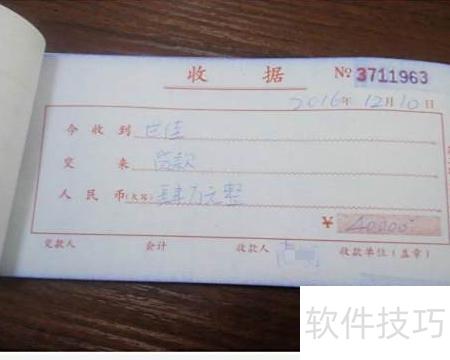 收 据 № 3711963
2016年 12月 10日
今 收 到 世佳
交 来 货款
人 民 币(大写) 肆万元整
¥ 40000
交款人 会计 收款人 收款单位(盖章)
软件技巧